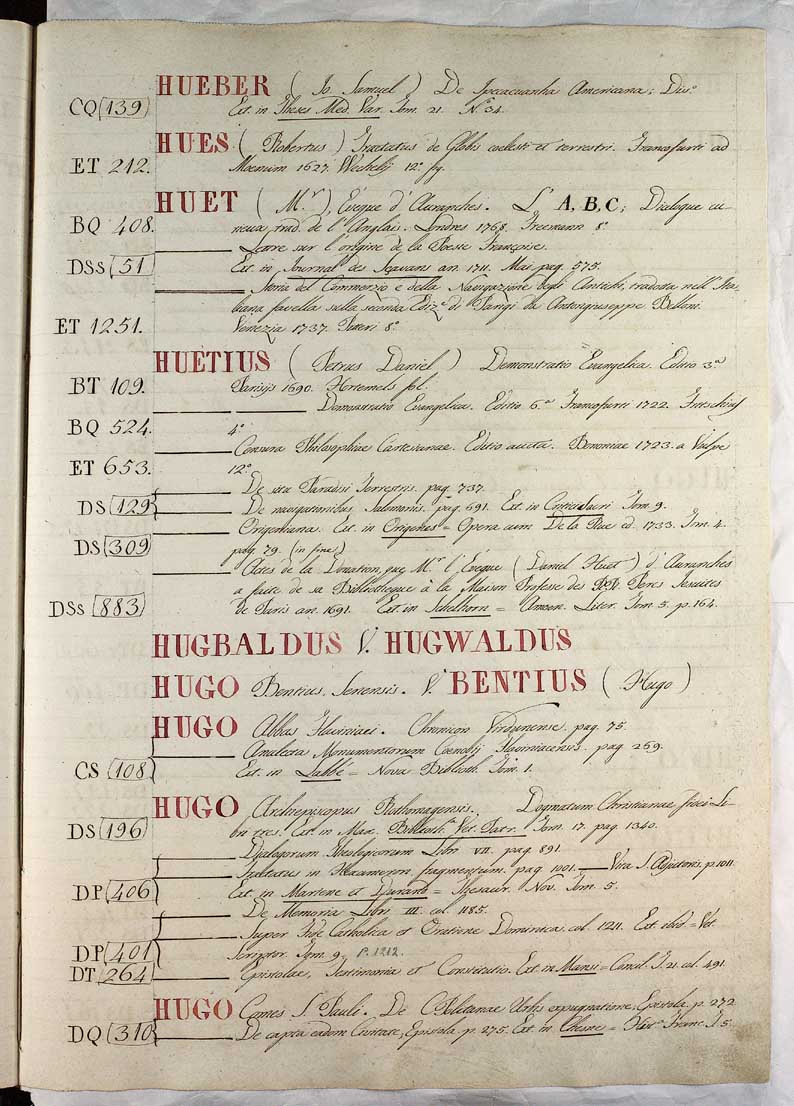 HUEBER ( Jo Samuel ) De Ipecacuanha Americana; Diss.º
CQ 139 Ext. in Theses Med. Var. Tom. 21. Nº 34.
HUES ( Robertus ) Tractatus de Globis coelesti et terrestri. Francofurti ad
ET 212. Moenum 1627. Wechelij 12º fig.
HUET ( M.r ), Evêque d'Auranches. L' A, B, C; Dialogue cu-
BQ 408. rieux, trad. de l'Anglais. Londres 1768. Freemann 8º
——— Lettre sur l'origine de la Poesie Françoise.
DSs 51 Ext. in Journal des Sçavans an. 1711. Mai pag. 575.
——— Storia del Commerzio e della Navigazione degli Antichi, tradotta nell'Ita-
liana favella sulla seconda Ediz.e di Parigi da Antongiuseppe Belloni.
ET 1251. Venezia 1737. Pitteri 8º
HUETIUS ( Petrus Daniel ) Demonstratio Evangelica. Editio 3.a
BT 109. Parisijs 1690. Hortemels fol.
——— Demonstratio Evangelica. Editio 6.a Francofurti 1722. Fritschius
BQ 524. 4º
——— Censura Philosophiae Cartesianae. Editio aucta. Bononiae 1723. a Vulpe
ET 653. 12º
——— De situ Paradisi Terrestris. pag. 737.
DS 129 ——— De navigationibus Salomonis. pag. 691. Ext. in Critici Sacri Tom. 9.
——— Origeniana. Ext. in Origenes = Opera cum De la Rue ed. 1733. Tom. 4.
DS 309 pag. 79. (in fine)
——— Actes de la Donation, que M.r l'Evêque ( Daniel Huet ) d'Auranches
a faite de sa Bibliotheque à la Maison Professe des RR. Peres Jesuites
DSs 883 de Paris an. 1691. Ext. in Schelhorn = Amoen. Liter. Tom. 5. p. 164.
HUGBALDUS V. HUGWALDUS
HUGO Bentius Senensis. V. BENTIUS ( Hugo )
HUGO Abbas Flaviniaci. Chronicon Virdunense. pag. 75.
——— Analecta Monumentorum Coenobij Flaviniacensis. pag. 269.
CS 108 Ext. in Labbé = Nova Biblioth. Tom. 1.
HUGO Archiepiscopus Rothomagensis. Dogmatum Christianae fidei Li-
DS 196 bri tres. Ext. in Max. Biblioth.a Vet. Patr. Tom. 17. pag. 1340.
——— Dialogorum Theologicorum Libri VII. pag. 891.
——— Tractatus in Hexameron fragmentum. pag. 1001. ——— Vita S. Adjutoris, p. 1011.
DP 406 Ext. in Martene et Durand = Thesaur. Nov. Tom. 5.
——— De Memoria Libri III. col. 1185.
——— Super Fide Catholica et Oratione Dominica. col. 1211. Ext. ibid = Vet.
DP 401 Scriptor. Tom. 9. p. 1212.
DT 264 ——— Epistolae, Testimonia et Constitutio. Ext. in Mansi = Concil. T. 21. col. 491.
HUGO Comes S. Pauli. De CPolitanae Urbis expugnatione, Epistola. p. 272
DQ 310 ——— De capta eadem Civitate, Epistola. p. 275. Ext. in Chesne = Hist. Franc. T. 5.